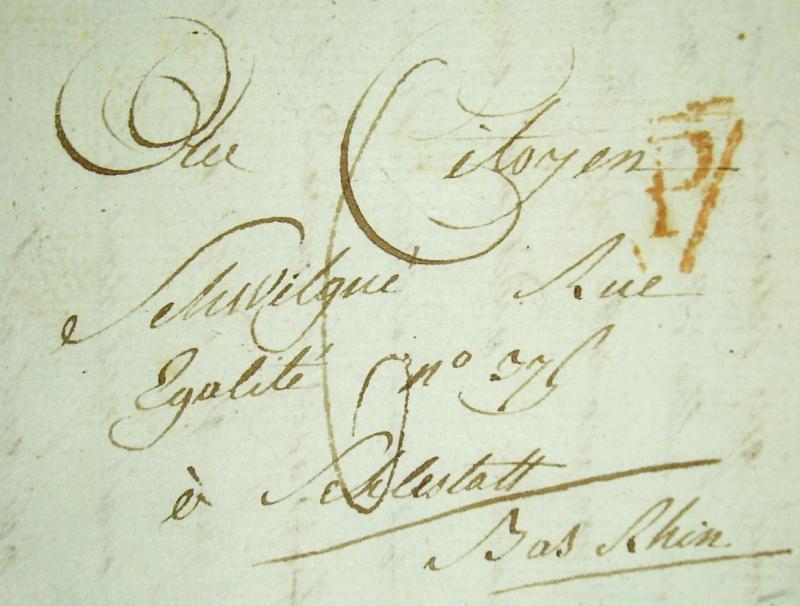 Au Citoyen
Schwilgué Rue
Egalité n° 375
à Schlestatt
Bas Rhin